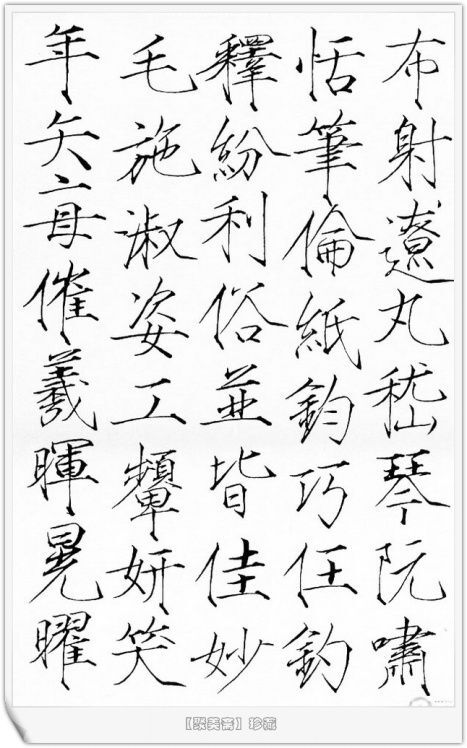 布射遼丸嵇琴阮嘯
恬筆倫紙鈞巧任釣
釋紛利俗並皆佳妙
毛施淑姿工顰妍笑
年矢每催羲暉晃曜
【聚美斋】珍藏